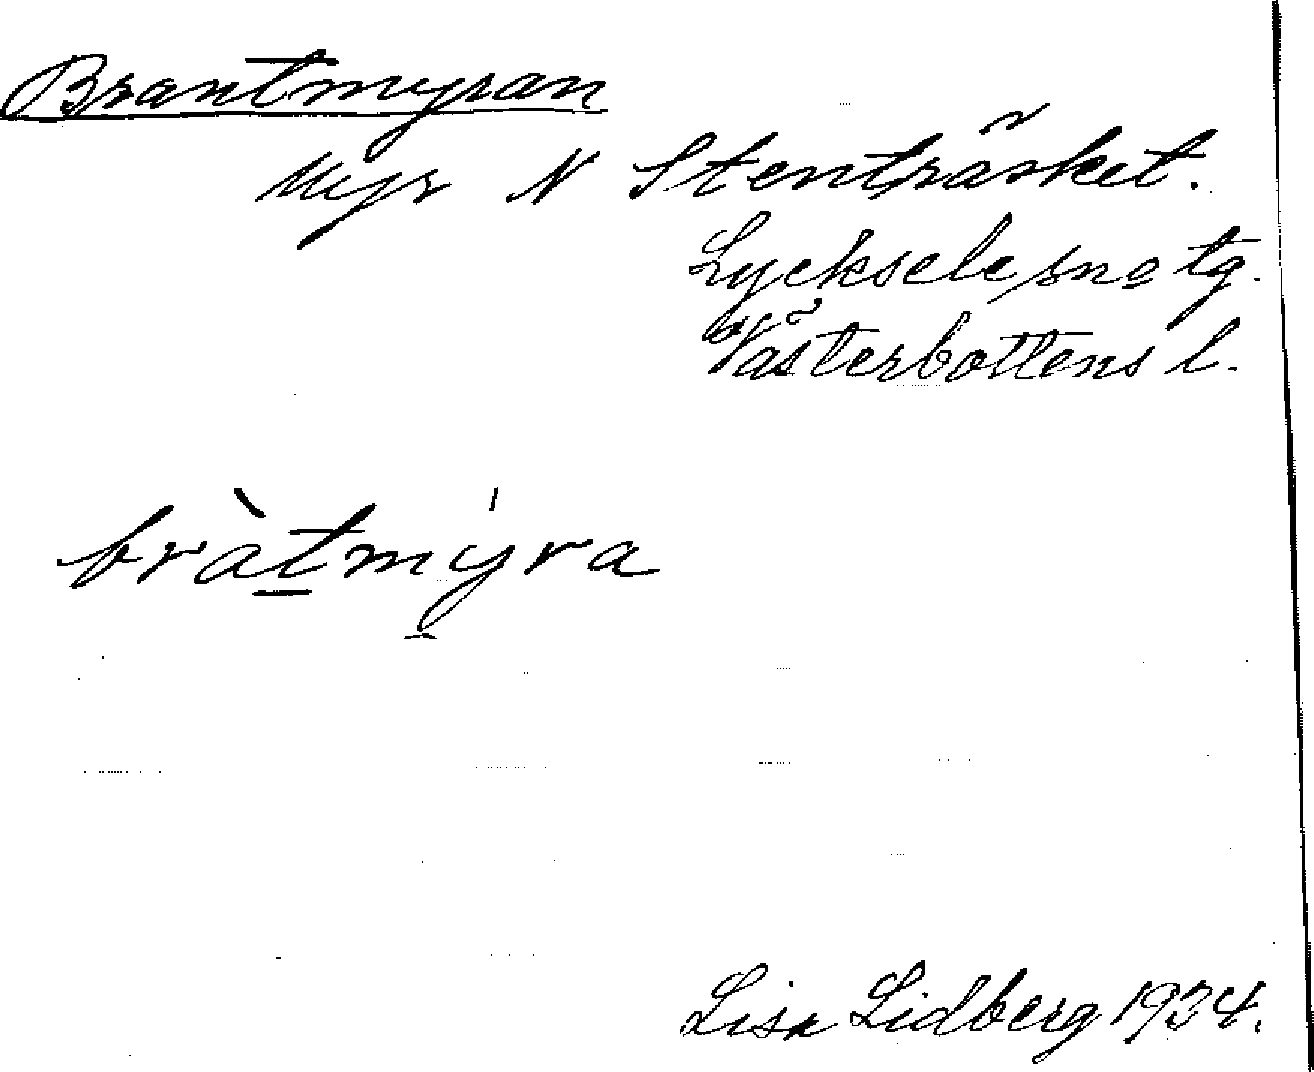 Brantmyran
Myr N Stenträsket.
Lycksele sn o tg.
Västerbottens l.
bràt̲mýra
Lisa Lidberg 1934.